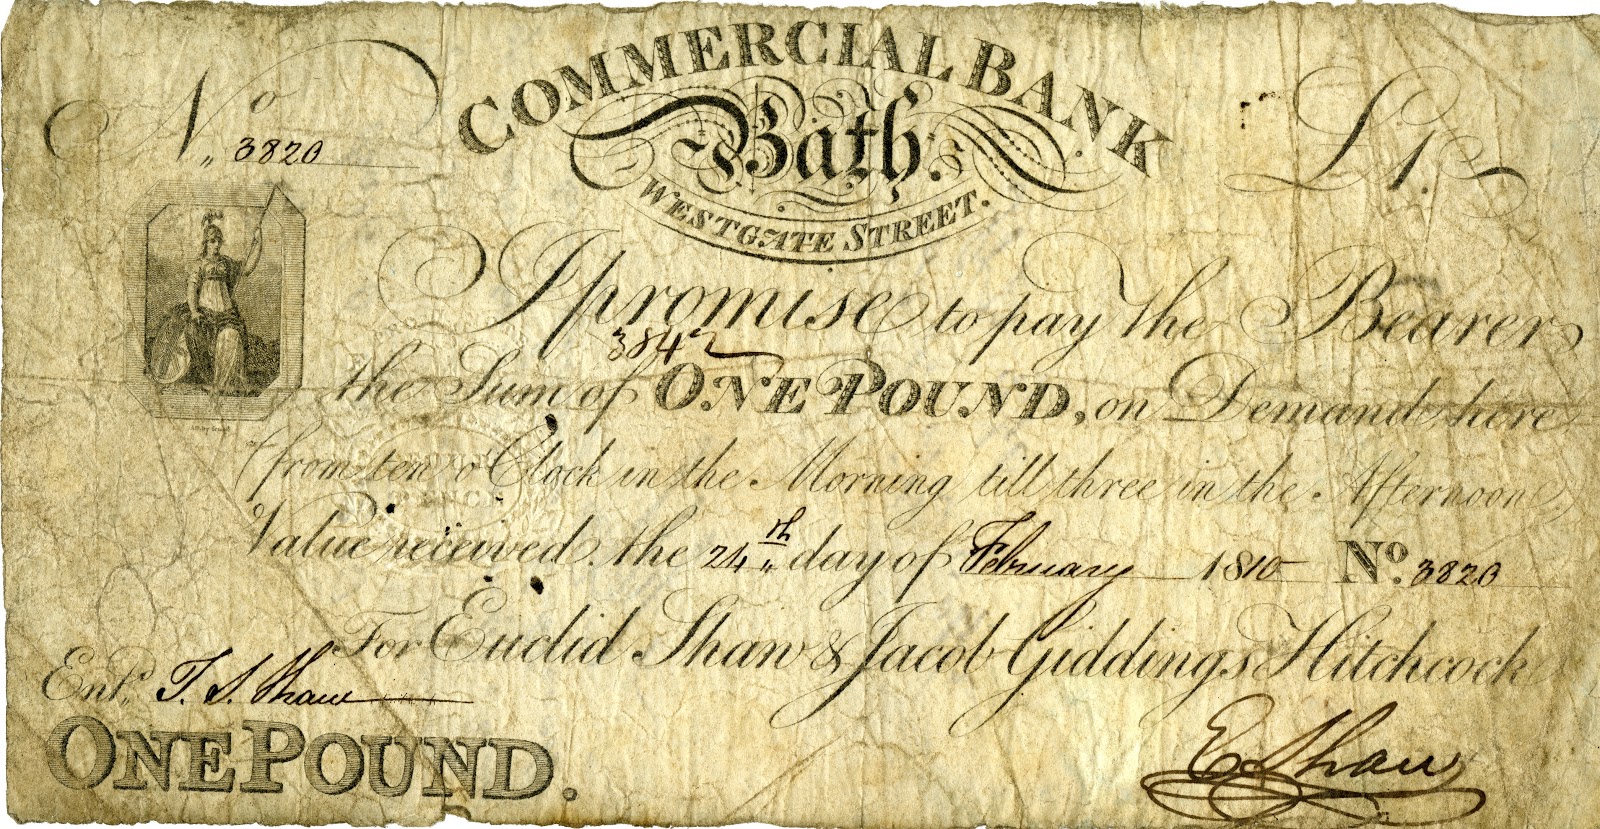 COMMERCIAL BANK
No 3820
Bath.
£1.
WESTGATE STREET.
I promise to pay the Bearer
3842
the Sum of ONE POUND, on Demand here
(from ten o'Clock in the Morning till three in the Afternoon)
Value received the 24th day of February 1810 No. 3820
For Euclid Shaw & Jacob Giddings Hitchcock
Entd. T. S. Shaw
ONE POUND.
E Shaw